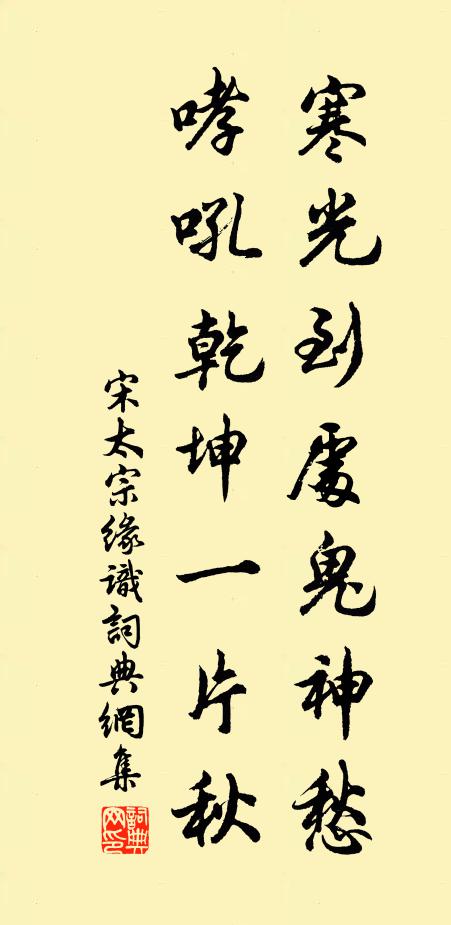 寒光到處鬼神愁
哮吼乾坤一片秋
宋太宗緣識詞典網集
詞典
网印